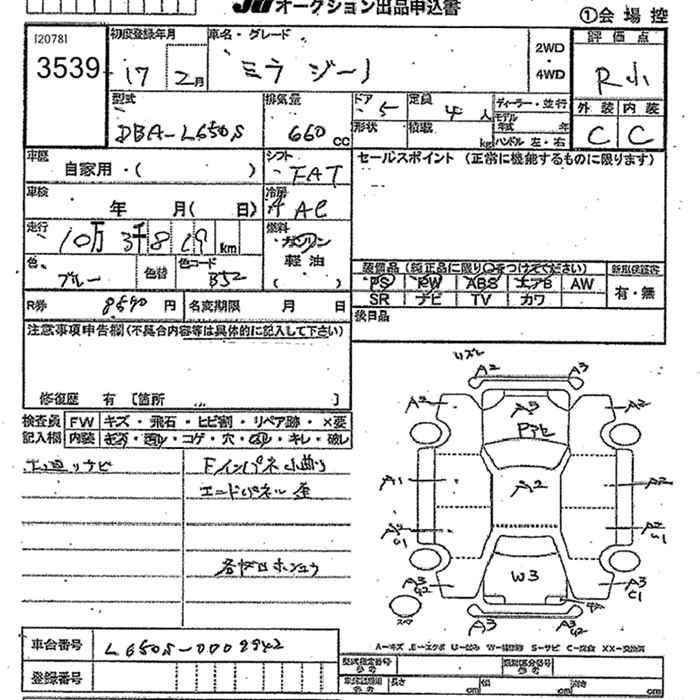 JU オークション出品申込書
①会場控
[2078]
3539
初度登録年月
17 2月
車名・グレード
ミラ ジーノ
2WD
・
4WD
評価点
R小
型式
DBA-L650S
排気量
660 cc
ドア
5
定員
4人
形状
積載
kg
ディーラー・並行
モデル
年式 年
ハンドル 左・右
外装 内装
C C
車歴
自家用・( )
シフト
FAT
セールスポイント (正常に機能するものに限ります)
車検
年 月( 日)
冷房
AC
走行
10万3千819 km
燃料
ガソリン
軽油
( )
色
ブルー
色替
色コード
B52
装備品(純正品に限り○をつけてください)
PS PW ABS エアB AW
SR ナビ TV カワ
新車保証書
有・無
R券
8590 円
名変期限 月 日
後日品
注意事項申告欄(不具合内容等は具体的に記入して下さい)
修復歴 有 [箇所 ]
検査員
記入欄
FW キズ・飛石・ヒビ割・リペア跡・×要
内装 キズ・汚れ・コゲ・穴・凹み・キレ・破レ
Fインパネ小曲り
エンドパネル歪
A2 A3
A2 A3 A2
A1 A2 A2
A2 A2
W3
A3 A3
A3 A3
スペア
車台番号
L650S-0009942
登録番号
A-キズ E-エクボ U-凹み W-補修跡 S-サビ C-腐食 XX-交換済
型式指定番号
参考
類別区分番号
参考
長さ cm 幅 cm 高さ cm